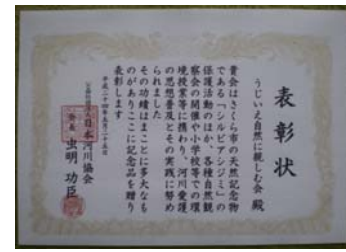 表彰状
うじいえ自然に親しむ会 殿
貴会はさくら市の天然記念物
である「シルビアシジミ」の
保護活動のほか、各種自然観
察会の開催や小学校等での環
境授業等に携わり、河川愛護
の思想普及とその実践に努め
られました
その功績はまことに多大なも
のがありここに記念品を贈り
表彰します
平成二十四年五月二十五日
公益社団法人日本河川協会
会長 虫明功臣